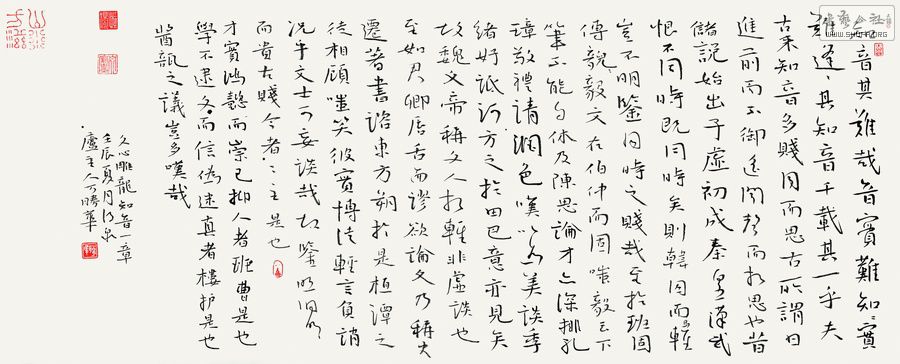 知音其難哉音實難知〻實
難逢〻其知音千載其一乎夫
古來知音多賤同而思古所謂日
進前而不御遙聞聲而相思也昔
儲說始出子虛初成秦皇漢武
恨不同時既同時矣則韓囚而馬輕
豈不明鑒同時之賤哉至於班固
傅毅毅文在伯仲而固嗤毅云下
筆不能自休及陳思論才亦深排孔
璋敬禮請潤色嘆以為美談季
緒好詆訶方之於田巴意亦見矣
故魏文帝稱文人相輕非虛談也
至如君卿唇舌而謬欲論文乃稱史
遷著書諮東方朔於是桓譚之
徒相顧嗤笑彼實博徒輕言負誚
況乎文士可妄談哉故鑒照洞明
而貴古賤今者二主是也
才實鴻懿而崇己抑人者班曹是也
學不逮文而信偽迷真者樓護是也
醬瓿之議豈多嘆哉
文心雕龍知音一章
壬辰夏月
廬主人